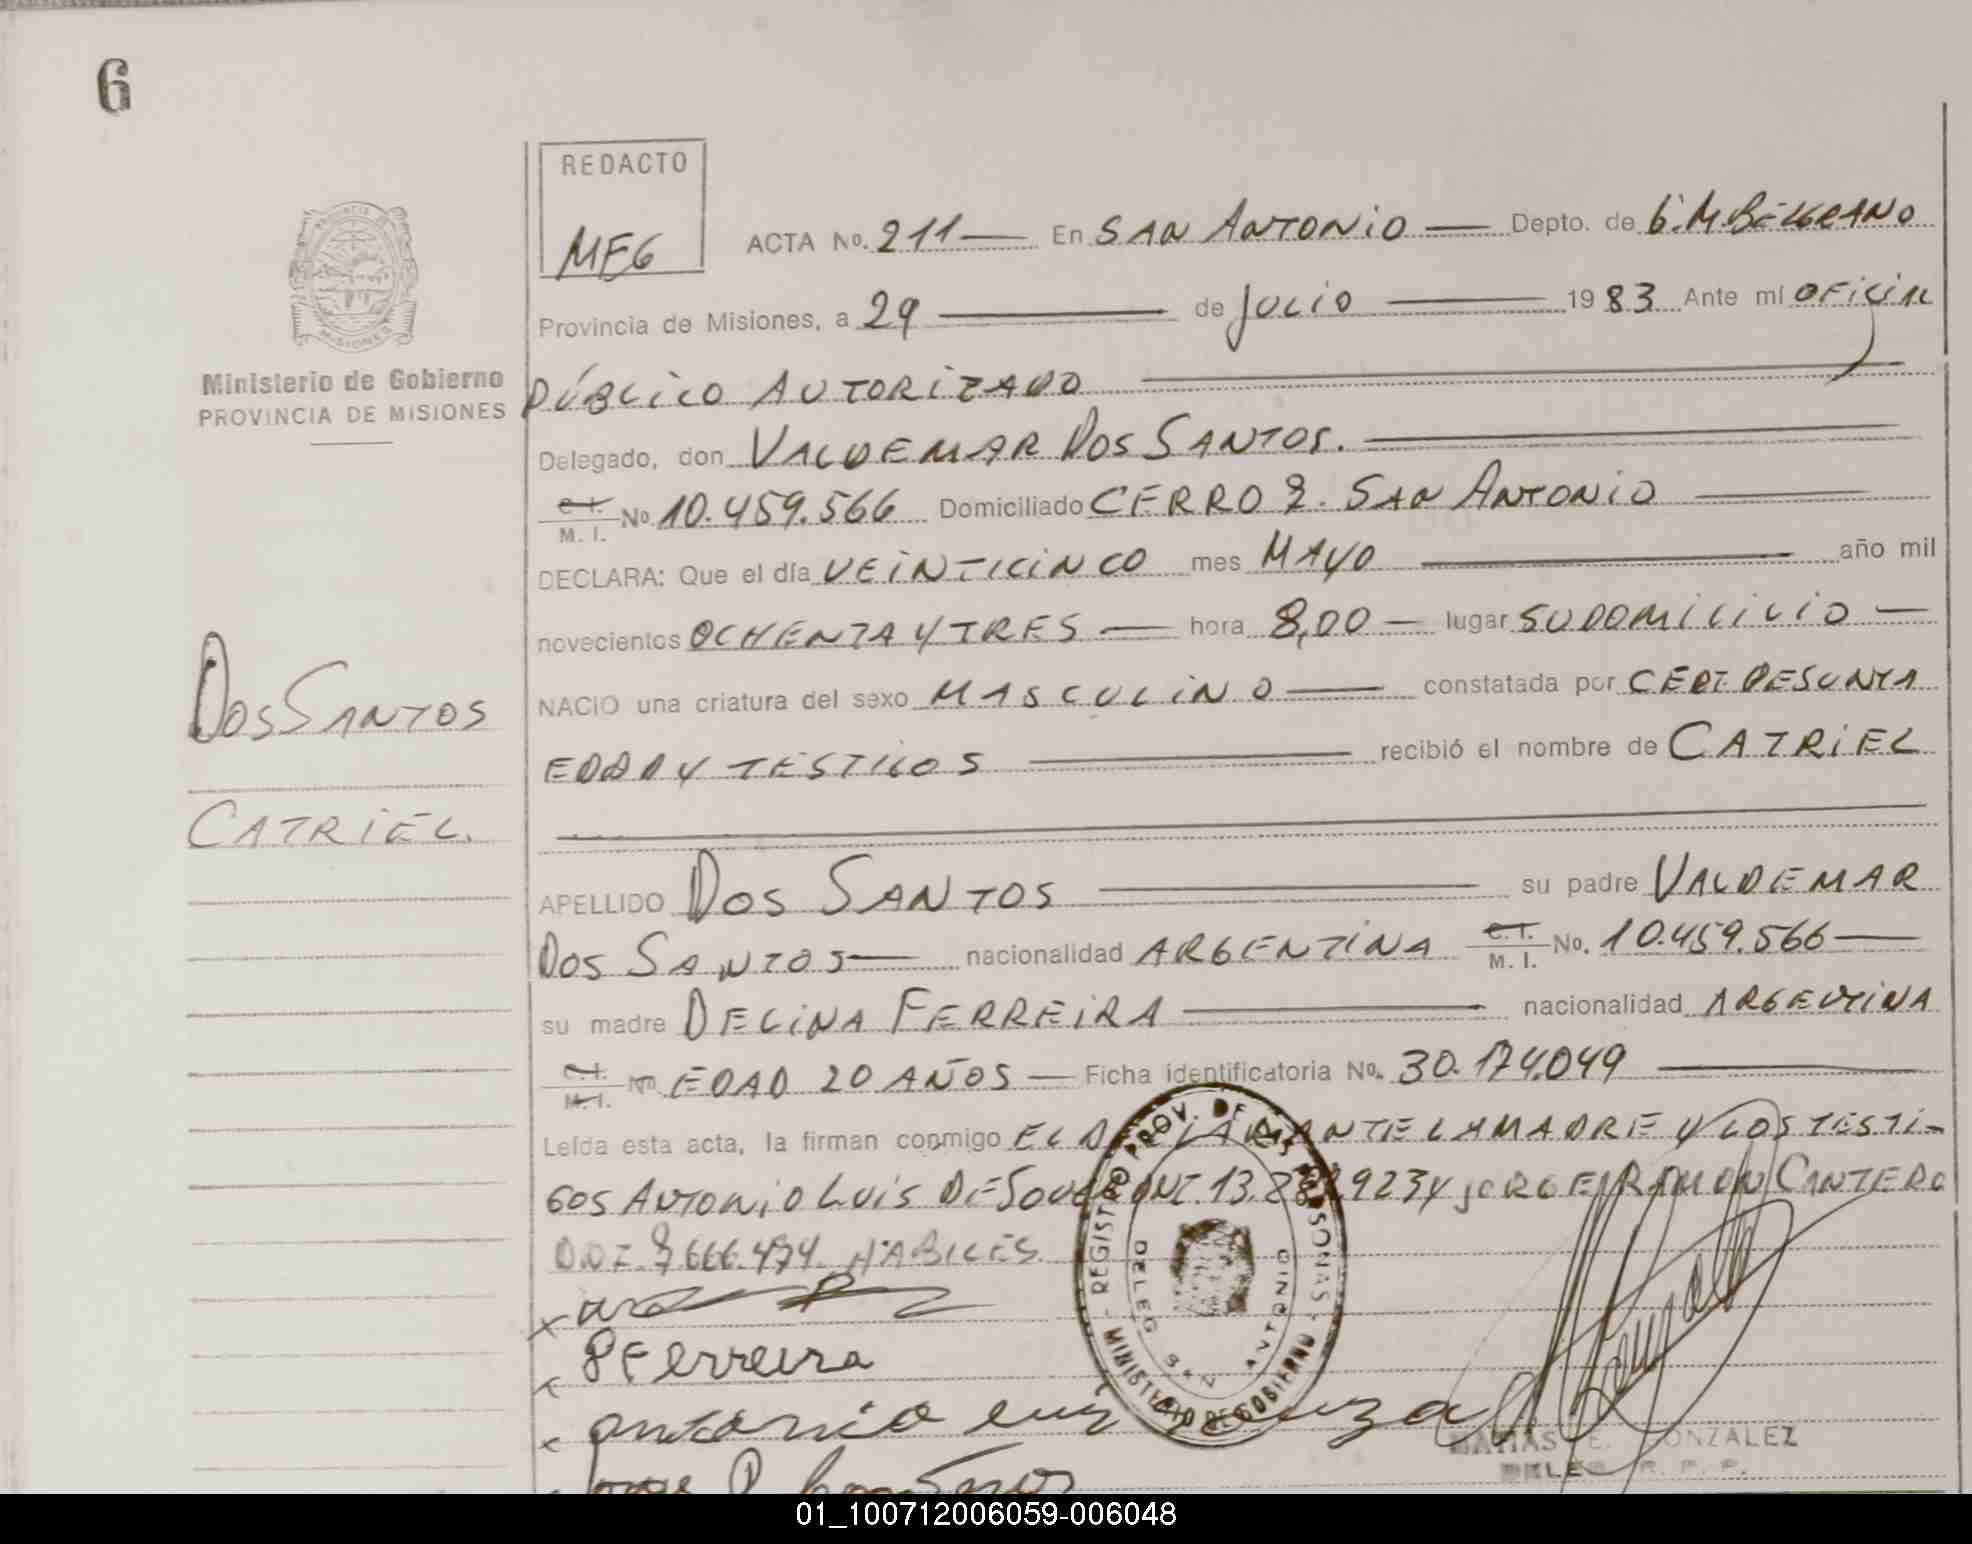 6
REDACTO
MEG
PROVINCIA DE
MISIONES
Ministerio de Gobierno
PROVINCIA DE MISIONES
DOS SANTOS
CATRIEL.
ACTA No. 211 — En SAN ANTONIO — Depto. de G.M. BELGRANO
Provincia de Misiones, a 29 — de JULIO — 1983 Ante mí OFICIAL
PÚBLICO AUTORIZADO
Delegado, don VALDEMAR DOS SANTOS.
C. I. / M. I. No 10.459.566 Domiciliado CERRO 2. SAN ANTONIO —
DECLARA: Que el día VEINTICINCO mes MAYO — año mil
novecientos OCHENTA Y TRES — hora 8,00 — lugar SU DOMICILIO —
NACIO una criatura del sexo MASCULINO — constatada por CERT DE SUNTA
EDAD Y TESTIGOS — recibió el nombre de CATRIEL
APELLIDO DOS SANTOS — su padre VALDEMAR
DOS SANTOS — nacionalidad ARGENTINA C. I. / M. I. No. 10.459.566 —
su madre DELINA FERREIRA — nacionalidad ARGENTINA
C. I. / M. I. No EDAD 20 AÑOS — Ficha identificatoria No. 30.174.049 —
Leída esta acta, la firman conmigo EL LA MADRE Y LOS TESTI-
GOS ANTONIO LUIS DE DNI. 13. 923 Y JORGE RAMON CANTERO
666.474 HABILES.
Ferreira
antonio
MINISTERIO DE GOBIERNO - REGISTRO PROV. DE LAS PERSONAS -
DELEG. SAN ANTONIO
MATIAS E. GONZALEZ
DELEG. R. P. P.
01_100712006059-006048